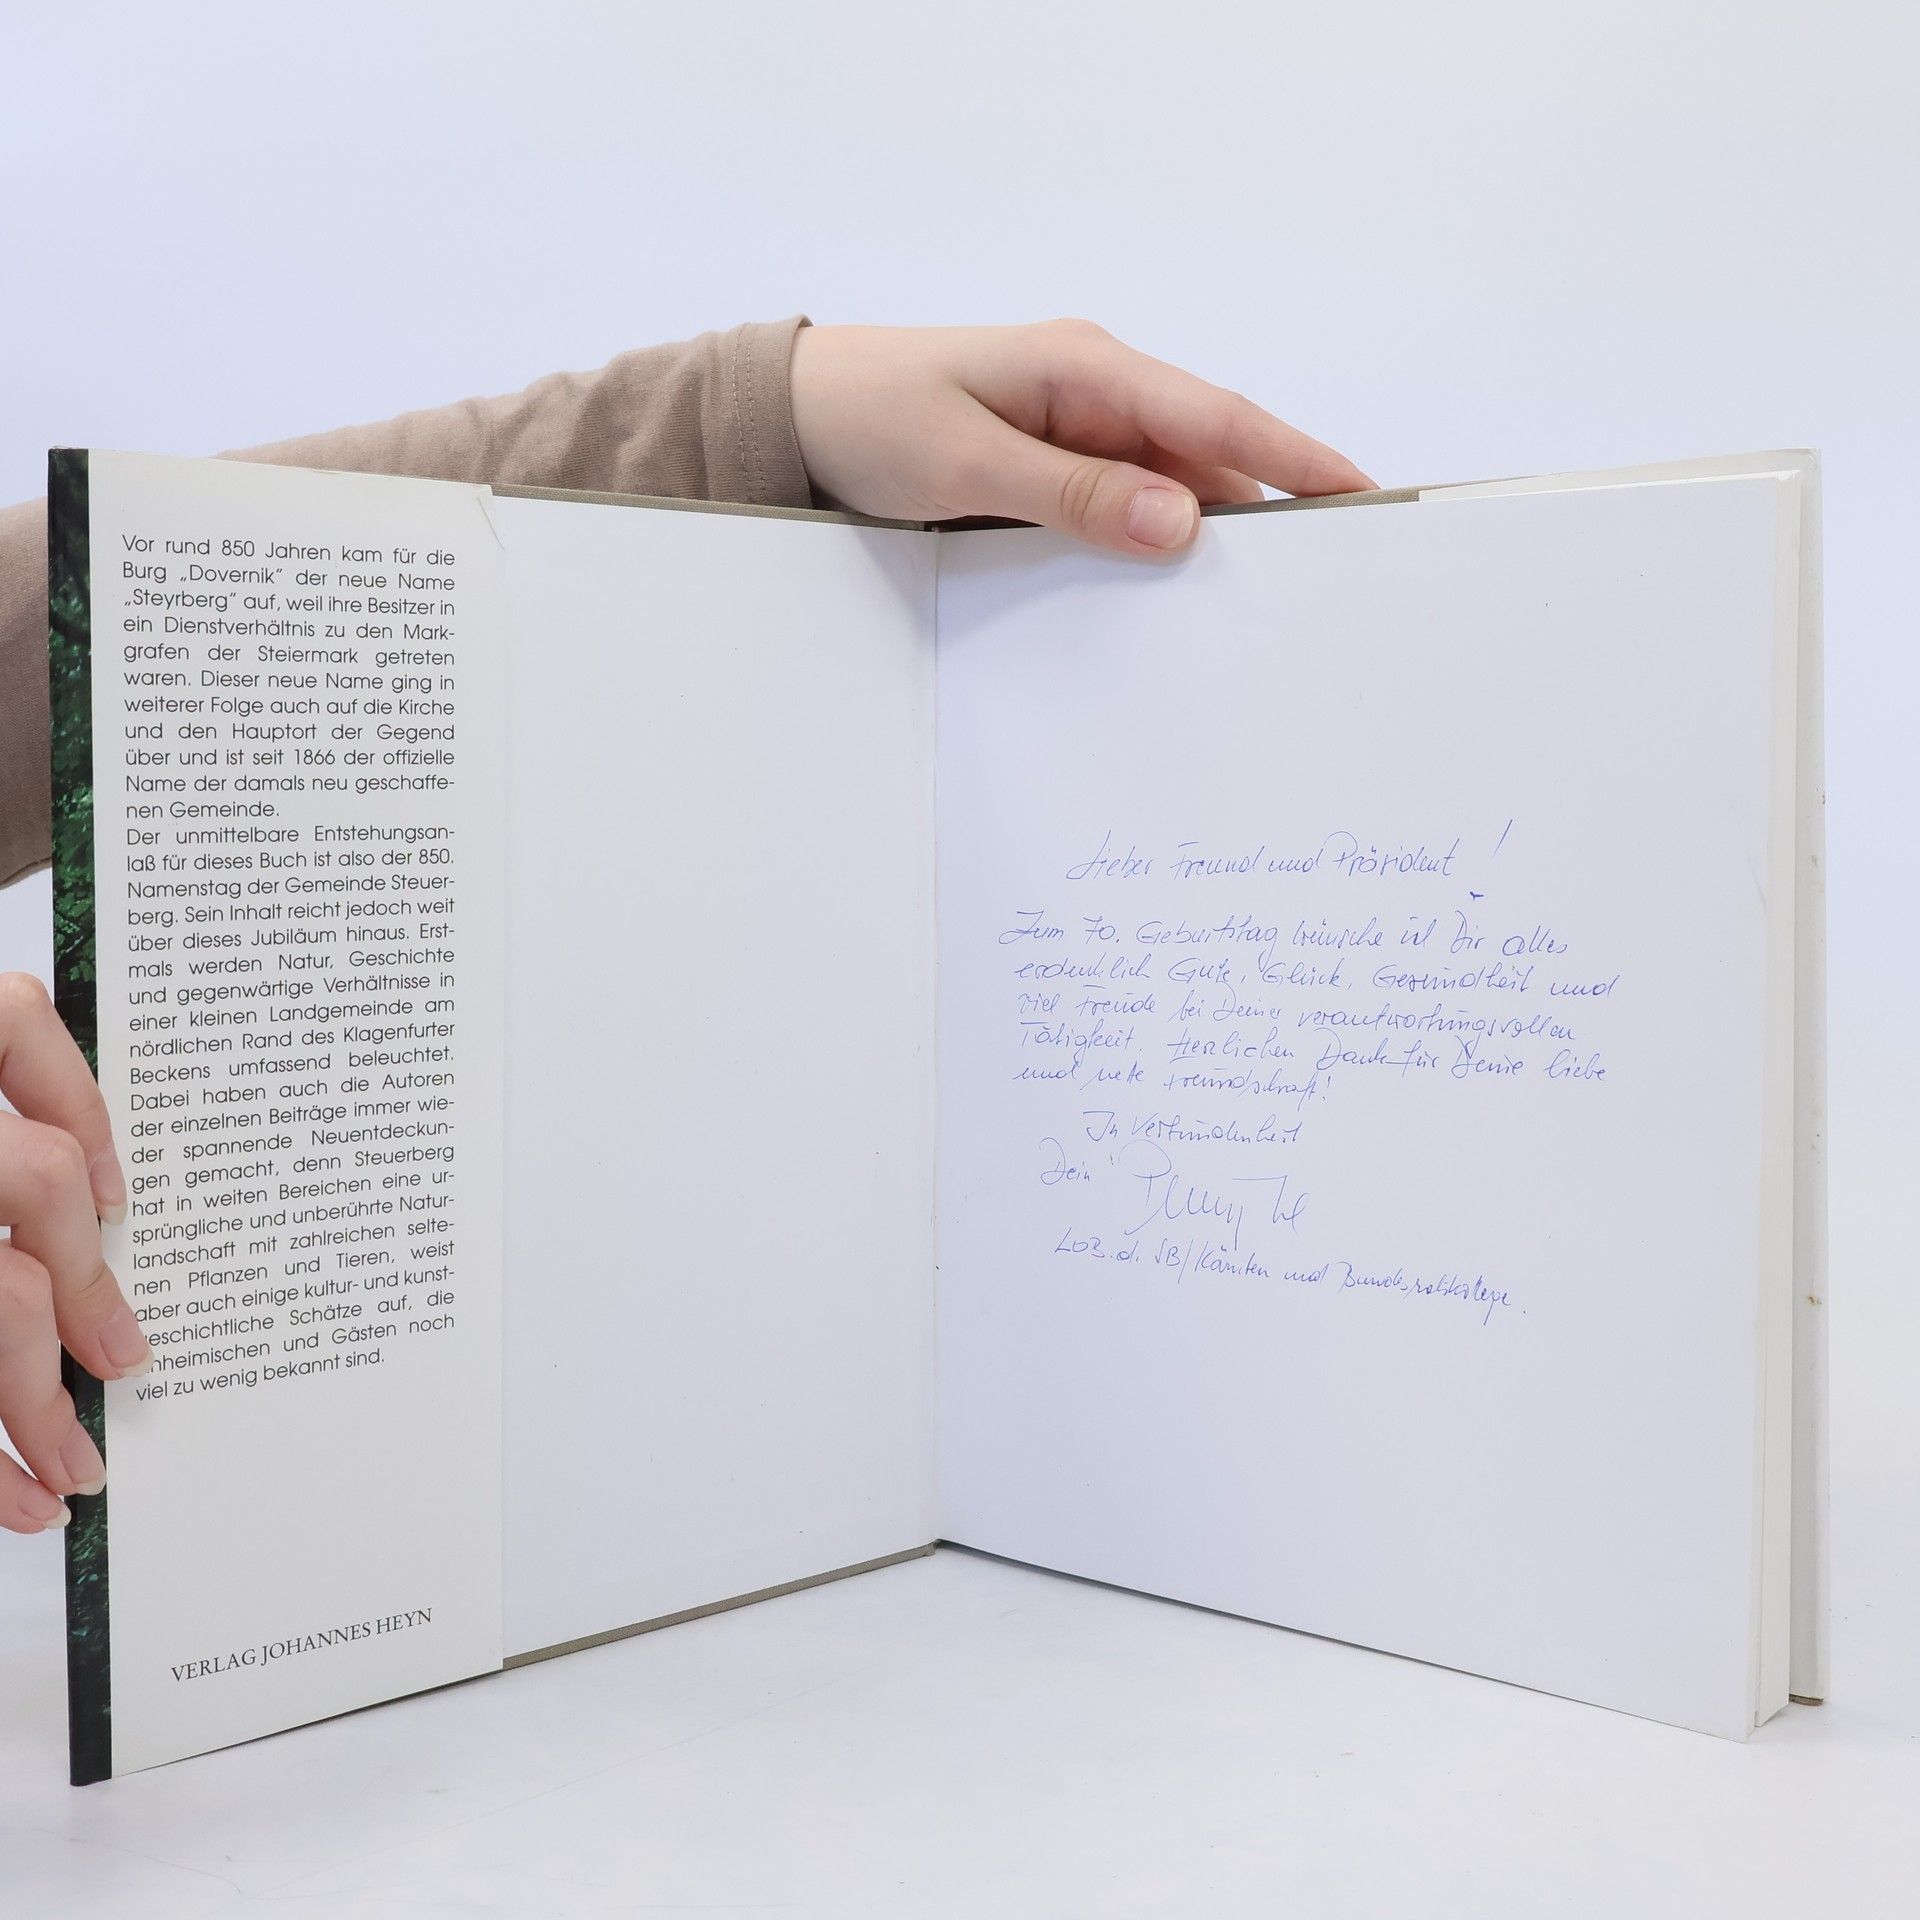 Vor rund 850 Jahren kam für die
Burg „Dovernik“ der neue Name
„Steyrberg“ auf, weil ihre Besitzer in
ein Dienstverhältnis zu den Mark-
grafen der Steiermark getreten
waren. Dieser neue Name ging in
weiterer Folge auch auf die Kirche
und den Hauptort der Gegend
über und ist seit 1866 der offizielle
Name der damals neu geschaffe-
nen Gemeinde.
Der unmittelbare Entstehungsan-
laß für dieses Buch ist also der 850.
Namenstag der Gemeinde Steuer-
berg. Sein Inhalt reicht jedoch weit
über dieses Jubiläum hinaus. Erst-
mals werden Natur, Geschichte
und gegenwärtige Verhältnisse in
einer kleinen Landgemeinde am
nördlichen Rand des Klagenfurter
Beckens umfassend beleuchtet.
Dabei haben auch die Autoren
der einzelnen Beiträge immer wie-
der spannende Neuentdeckun-
gen gemacht, denn Steuerberg
hat in weiten Bereichen eine ur-
sprüngliche und unberührte Natur-
landschaft mit zahlreichen selte-
nen Pflanzen und Tieren, weist
aber auch einige kultur- und kunst-
geschichtliche Schätze auf, die
nheimischen und Gästen noch
viel zu wenig bekannt sind.
VERLAG JOHANNES HEYN
Lieber Freund und Präsident!
Zum 70. Geburtstag wünsche ich Dir alles
erdenklich Gute, Glück, Gesundheit und
viel Freude bei Deiner verantwortungsvollen
Tätigkeit. Herzlichen Dank für Deine liebe
und nette Freundschaft!
In Verbundenheit
Dein
LOB. d. SB/Kärnten und Bundesratskollege.